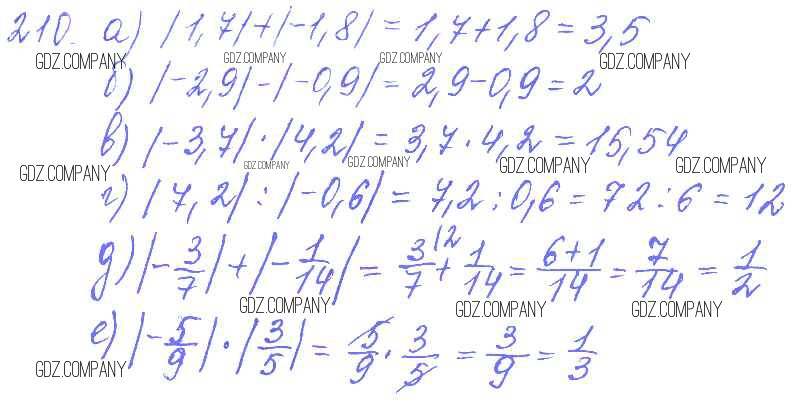 210. а) |1,7|+|-1,8| = 1,7+1,8 = 3,5
GDZ.COMPANY GDZ.COMPANY GDZ.COMPANY GDZ.COMPANY
б) |-2,9|-|-0,9| = 2,9-0,9 = 2
в) |-3,7|·|4,2| = 3,7·4,2 = 15,54
GDZ.COMPANY GDZ.COMPANY GDZ.COMPANY GDZ.COMPANY GDZ.COMPANY
г) |7,2| : |-0,6| = 7,2:0,6 = 72:6 = 12
д) |-3/7|+|-1/14| = 3/7 |2 + 1/14 = 6+1/14 = 7/14 = 1/2
GDZ.COMPANY GDZ.COMPANY GDZ.COMPANY
е) |-5/9|·|3/5| = 5/9·3/5 = 3/9 = 1/3
GDZ.COMPANY